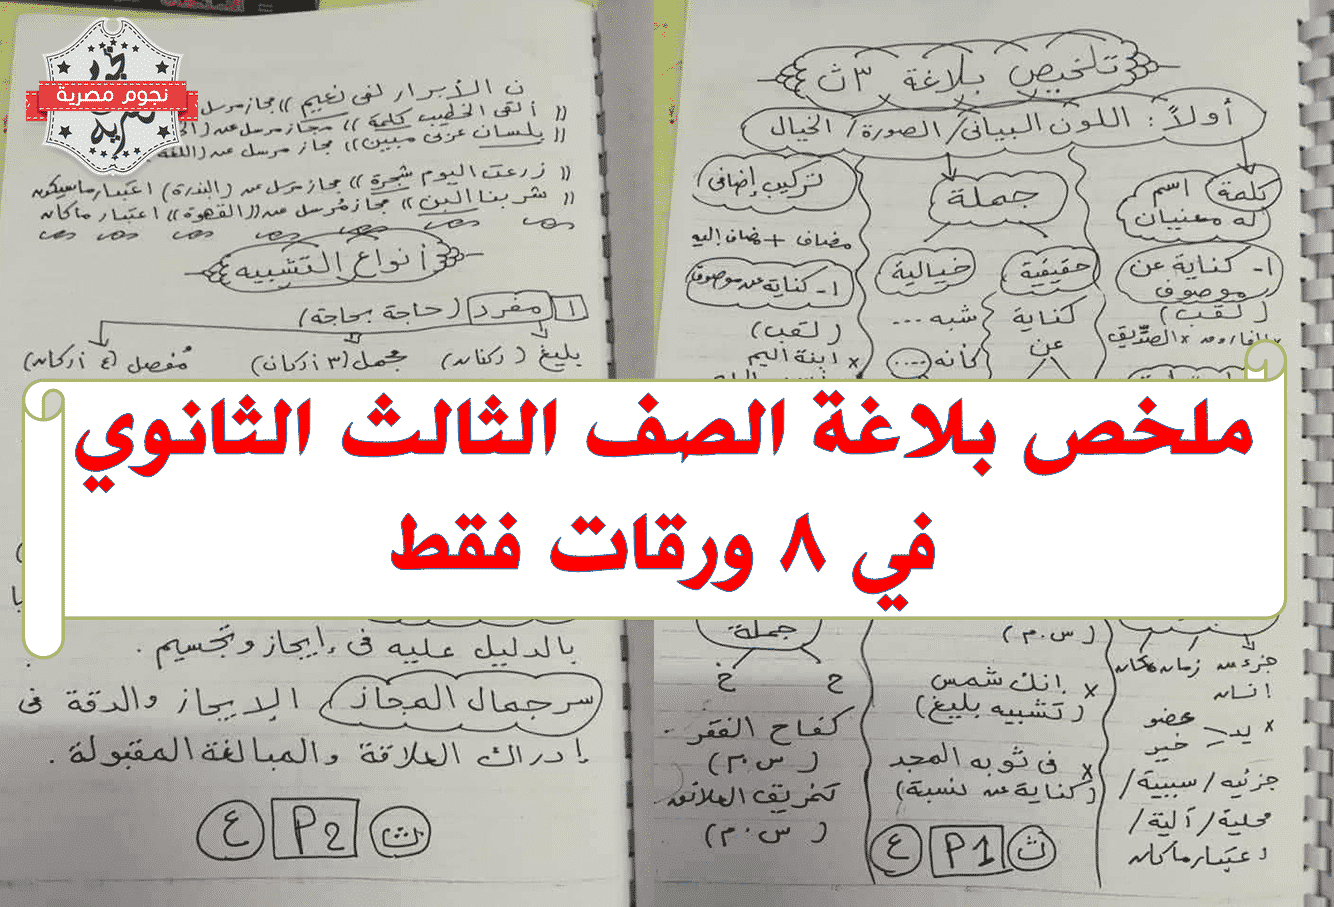 تلخيص بلاغة ٣ث
أولاً: اللون البياني/الصورة/الخيال
كلمة
اسم
له معنيان
١- كناية عن
موصوف
(لقب)
الصدِّيق
جملة
حقيقية
خيالية
كناية
عن
شبه ...
كأنه ....
تركيب إضافي
مضاف + مضاف إليه
١- كناية عن موصوف
(لقب)
x ابنة اليم
ملخص بلاغة الصف الثالث الثانوي
في ٨ ورقات فقط
جزء من
زمان مكان
إنسان
x يد
عضو
خير
جزئيه / سببية /
محلية / آلية /
اعتبار ما كان
(س.م)
x إنك شمس
(تشبيه بليغ)
x في ثوبه المجد
(كناية عن نسبة)
جملة
ح
خ
كفاح الفقر
(س.م)
(س.م)
ث P1 ع
نجوم مصرية
ن الأبرار لفي نعيم)) مجاز مرسل
(( ألقى الخطيب كلمة)) مجاز مرسل عن
(( بلسان عربي مبين)) مجاز مرسل عن (اللغة
(( زرعت اليوم شجرة)) مجاز مرسل عن (البذرة) اعتبار ما سيكون
(( شربنا البن)) مجاز مُرسل عن ((القهوة)) اعتبار ما كان
أنواع التشبيه
١ مفرد (حاجة بحاجة)
بليغ (ركنان)
مجمل (٣ أركان)
مُفصل (٤ أركان)
بالدليل عليه في إيجاز وتجسيم.
سر جمال المجاز الإيجاز والدقة في
إدراك العلاقة والمبالغة المقبولة.
ث P2 ع